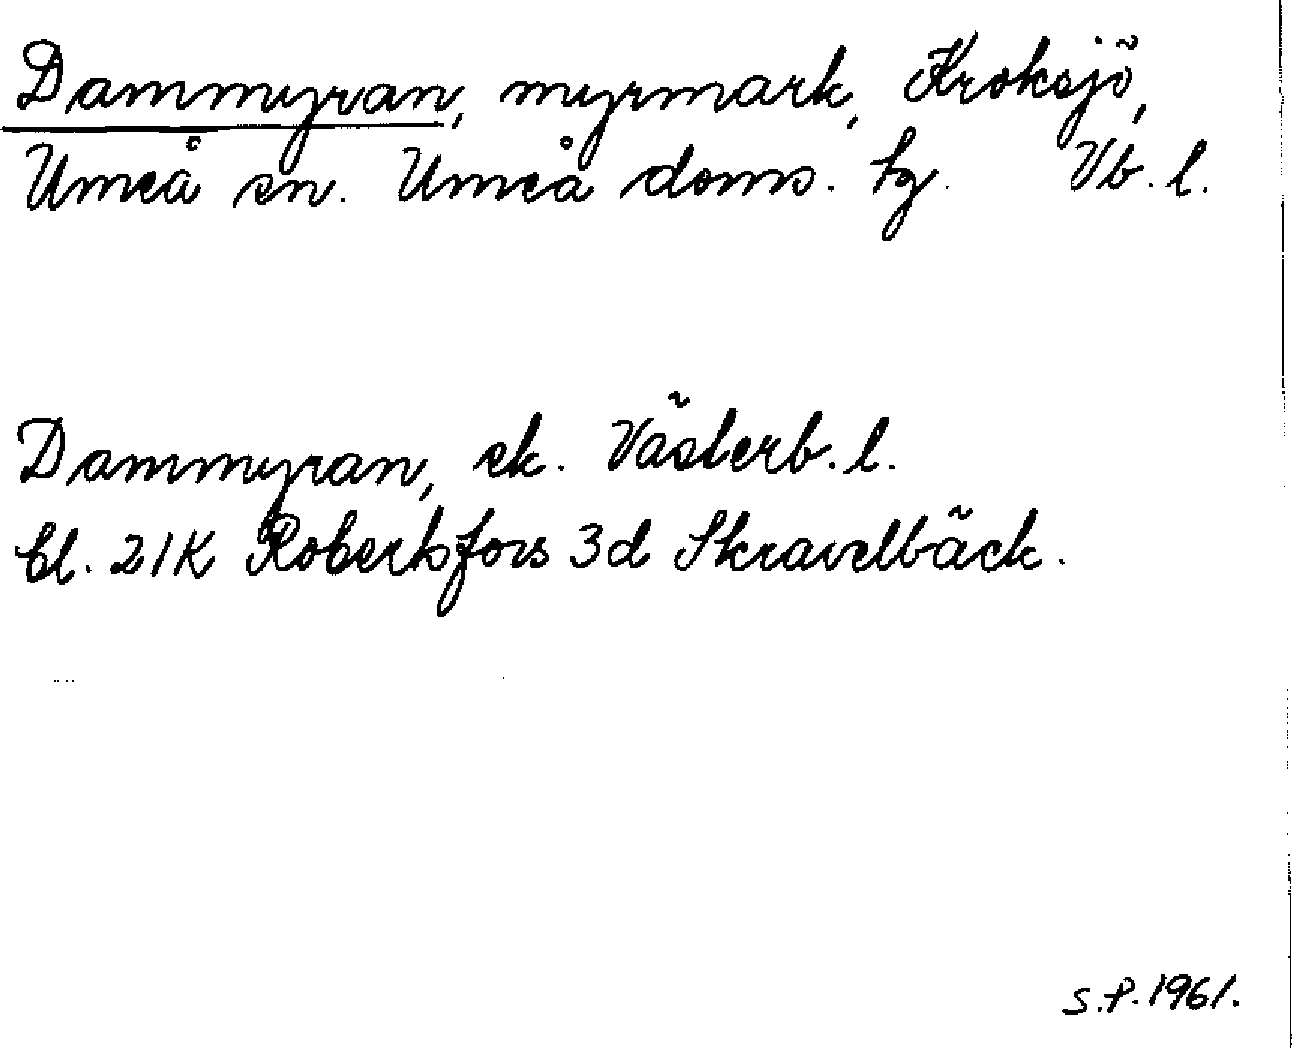 Dammyran, myrmark, Kroksjö,
Umeå sn. Umeå doms. tg. Vb. l.
Dammyran, ek. Västerb. l.
bl. 21K Robertsfors 3d Skravelbäck.
S.P. 1961.